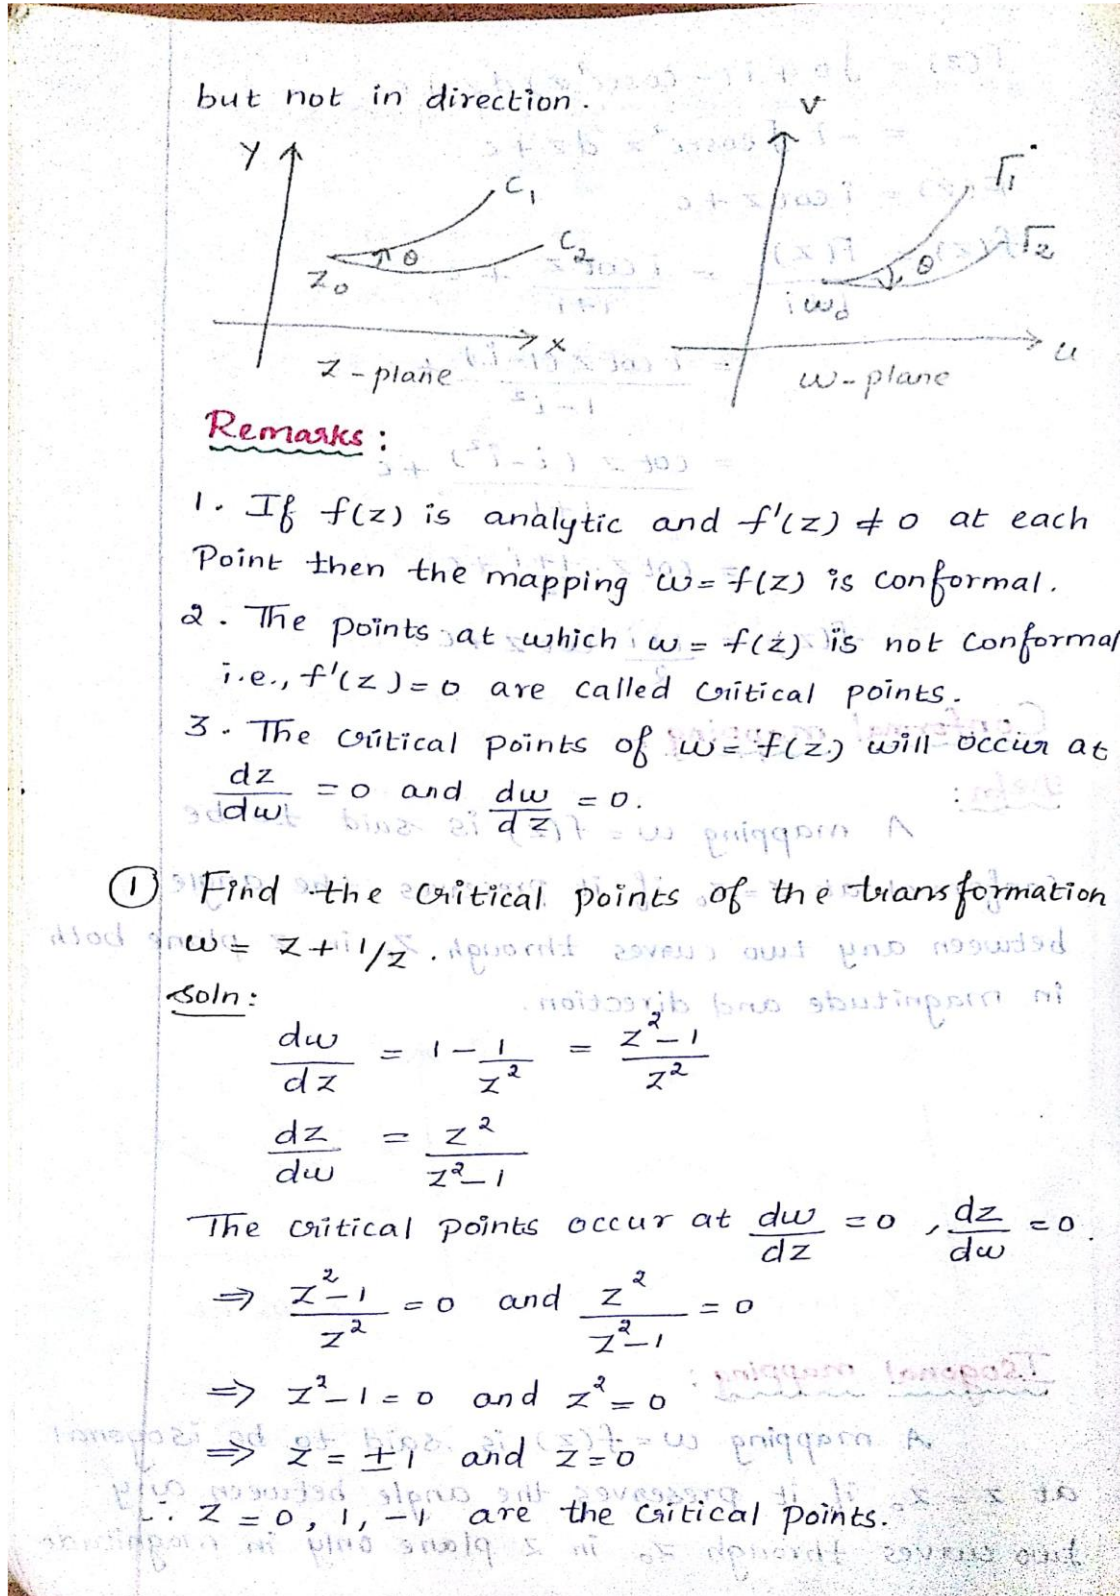 but not in direction.
y
C1
θ
C2
z0
x
z-plane
v
Γ1
θ
Γ2
w0
u
w-plane
Remarks:
1. If f(z) is analytic and f'(z) ≠ 0 at each
Point then the mapping w = f(z) is conformal.
2. The points at which w = f(z) is not Conformal
i.e., f'(z) = 0 are called critical points.
3. The critical points of w = f(z) will occur at
dz/dw = 0 and dw/dz = 0.
① Find the critical points of the transformation
w = z + 1/z.
Soln:
dw/dz = 1 - 1/z² = z²-1/z²
dz/dw = z²/z²-1
The critical points occur at dw/dz = 0, dz/dw = 0.
⇒ z²-1/z² = 0 and z²/z²-1 = 0
⇒ z²-1 = 0 and z² = 0
⇒ z = ±1 and z = 0
∴ z = 0, 1, -1 are the critical points.